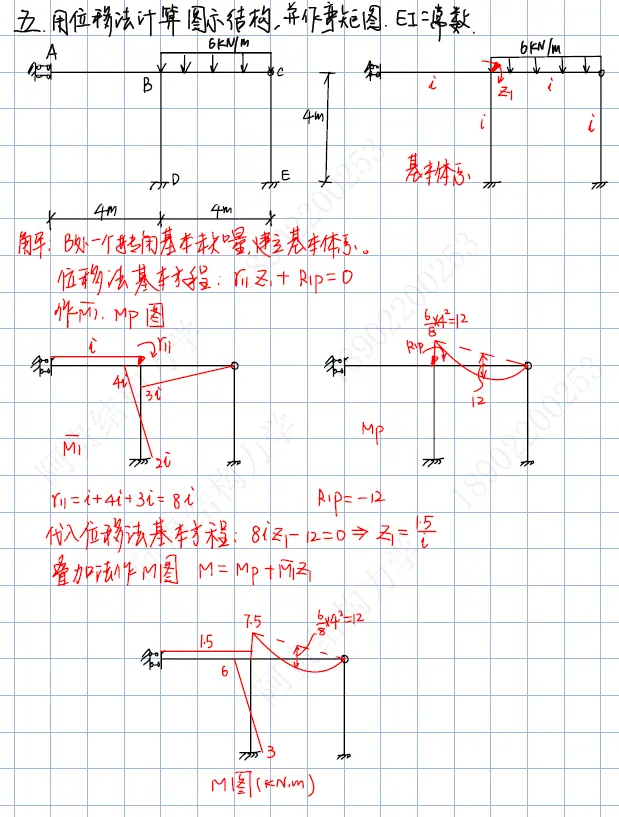 五.用位移法计算图示结构,并作弯矩图.EI=常数.
A
6KN/m
B
C
4m
D
E
4m
4m
6KN/m
Z1
i
i
i
i
基本体系
解: B处一个转角基本未知量,建立基本体系。
位移法基本方程: r11Z1+R1P=0
作M̄1. MP图
i
r11
4i
3i
2i
M̄1
6/8×4²=12
R1P
12
MP
r11=i+4i+3i=8i
R1P=-12
代入位移法基本方程: 8iZ1-12=0⇒Z1=1.5/i
叠加法作M图 M=MP+M̄1Z1
1.5
7.5
6/8×4²=12
6
3
M图(KN.m)
阿奥结构力学
18902200253